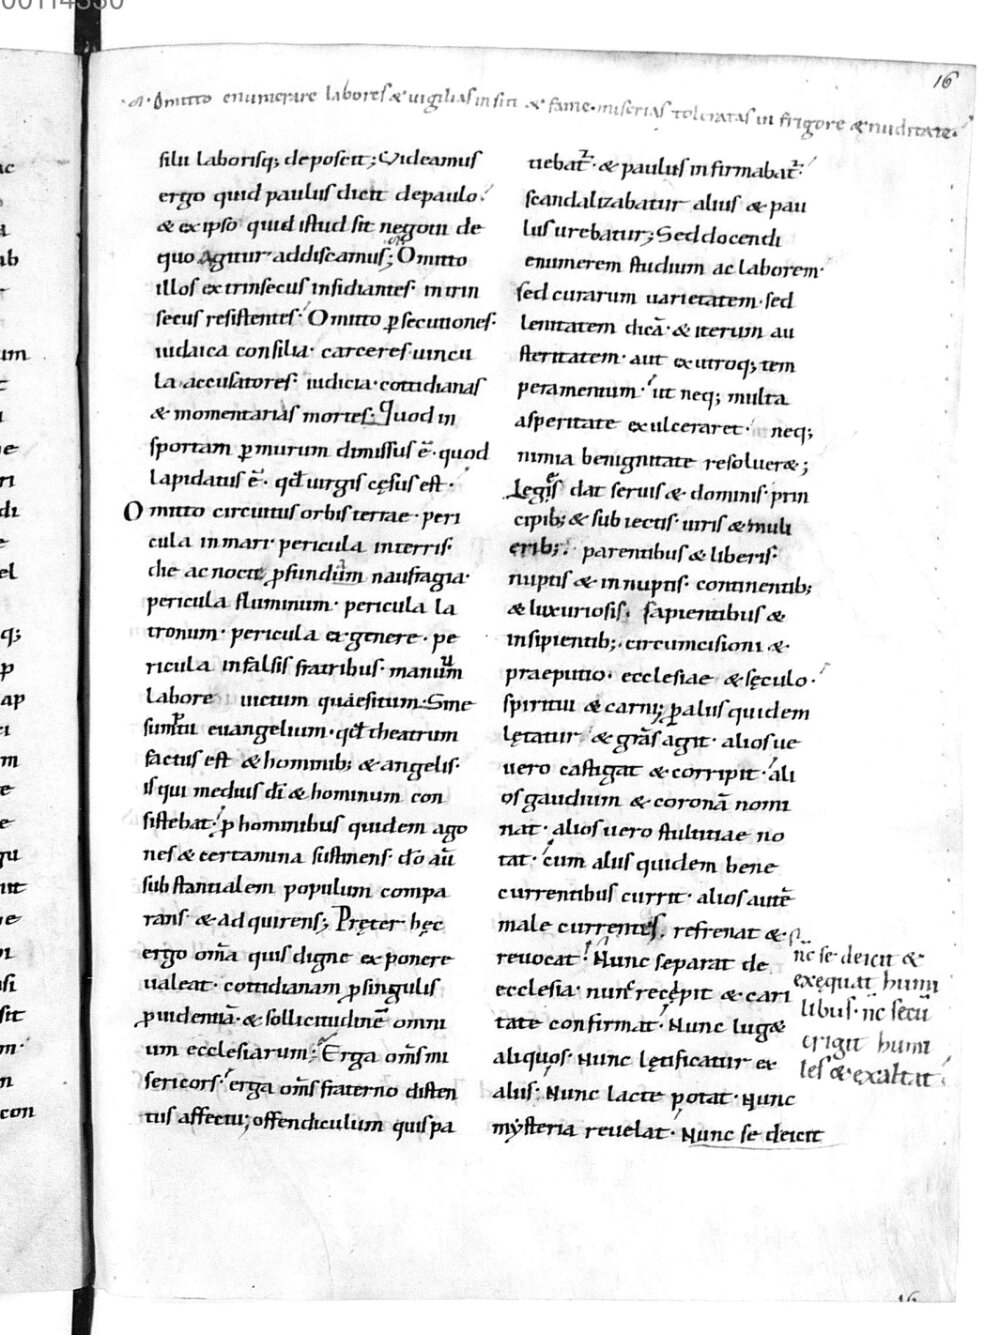 00114330
16
·a· Omitto enumerare labores & uigilias in siti & fame · miserias toleratas in frigore & nuditate ·
silii laborisq; deposcit; Uideamus
ergo quid paulus dicit depaulo·
& ex ipso quid istud sit negotii de
quo agitur addiscamus; Omitto
illos extrinsecus insidiantes · intrin
secus resistentes · Omitto p̱secutiones·
iudaica consilia · carceres uincu
la accusatores · iudicia · cottidianas
& momentarias mortes · Quod in
sportam p̱ murum dimissus ē · quod
lapidatus ē · qđ uirgis cęsus est ·
Omitto circuitus orbis terrae · peri
cula in mari · pericula in terris ·
die ac nocte p̱fundum naufragia ·
pericula fluminum · pericula la
tronum · pericula ex genere · pe
ricula in falsis fratribus · manuum
labore uictum quaesitum · Sine
sumptu euangelium · qđ theatrum
factus est & hominib; & angelis ·
is qui medius dī & hominum con
sistebat · p̱ hominibus quidem ago
nes & certamina sustinens · dō aū
substantialem populum compa
rans · & adquirens; Pręter hęc
ergo om̄a quis digne exponere
ualeat · cottidianam p̱ singulis
p̱uidentiā · & sollicitudinē omni
um ecclesiarum · Erga om̄s mi
sericors · erga om̄s fraterno disten
tus affectu; offendiculum quis pa
tiebat᷑ · & paulus infirmabat᷑ ·
scandalizabatur alius & pau
lus urebatur; Sed docendi
enumerem studium ac laborem ·
sed curarum uarietatem · sed
lenitatem dicā · & iterum au
steritatem · aut ex utroq; tem
peramentum · ut neq; multa
asperitate exulceraret · neq;
nimia benignitate resoluer&;
Leges dat seruis & dominis · prin
cipib; & subiectis · uiris & muli
erib; · parentibus & liberis ·
nuptis & innuptis · continentib;
& luxuriosis · sapientibus &
insipientib; · circumcisioni &
praeputio · ecclesiae & sęculo ·
spiritui & carni; p̱ aliis quidem
lętatur · & grās agit · alios ue
uero castigat & corripit · ali
os gaudium & coronā nomi
nat · alios uero stultitiae no
tat · cum aliis quidem bene
currentibus currit · alios autē
male currentes · refrenat &
reuocat · Nunc separat de
ecclesia · nunc recępit & cari
tate confirmat · Nunc lug&
aliquos · Nunc lętificatur ex
aliis · Nunc lacte potat · Nunc
mysteria reuelat · Nunc se deicit
nc̄ se deicit &
exęquat humi
libus · nc̄ secū
erigit humi
les & exaltat
16